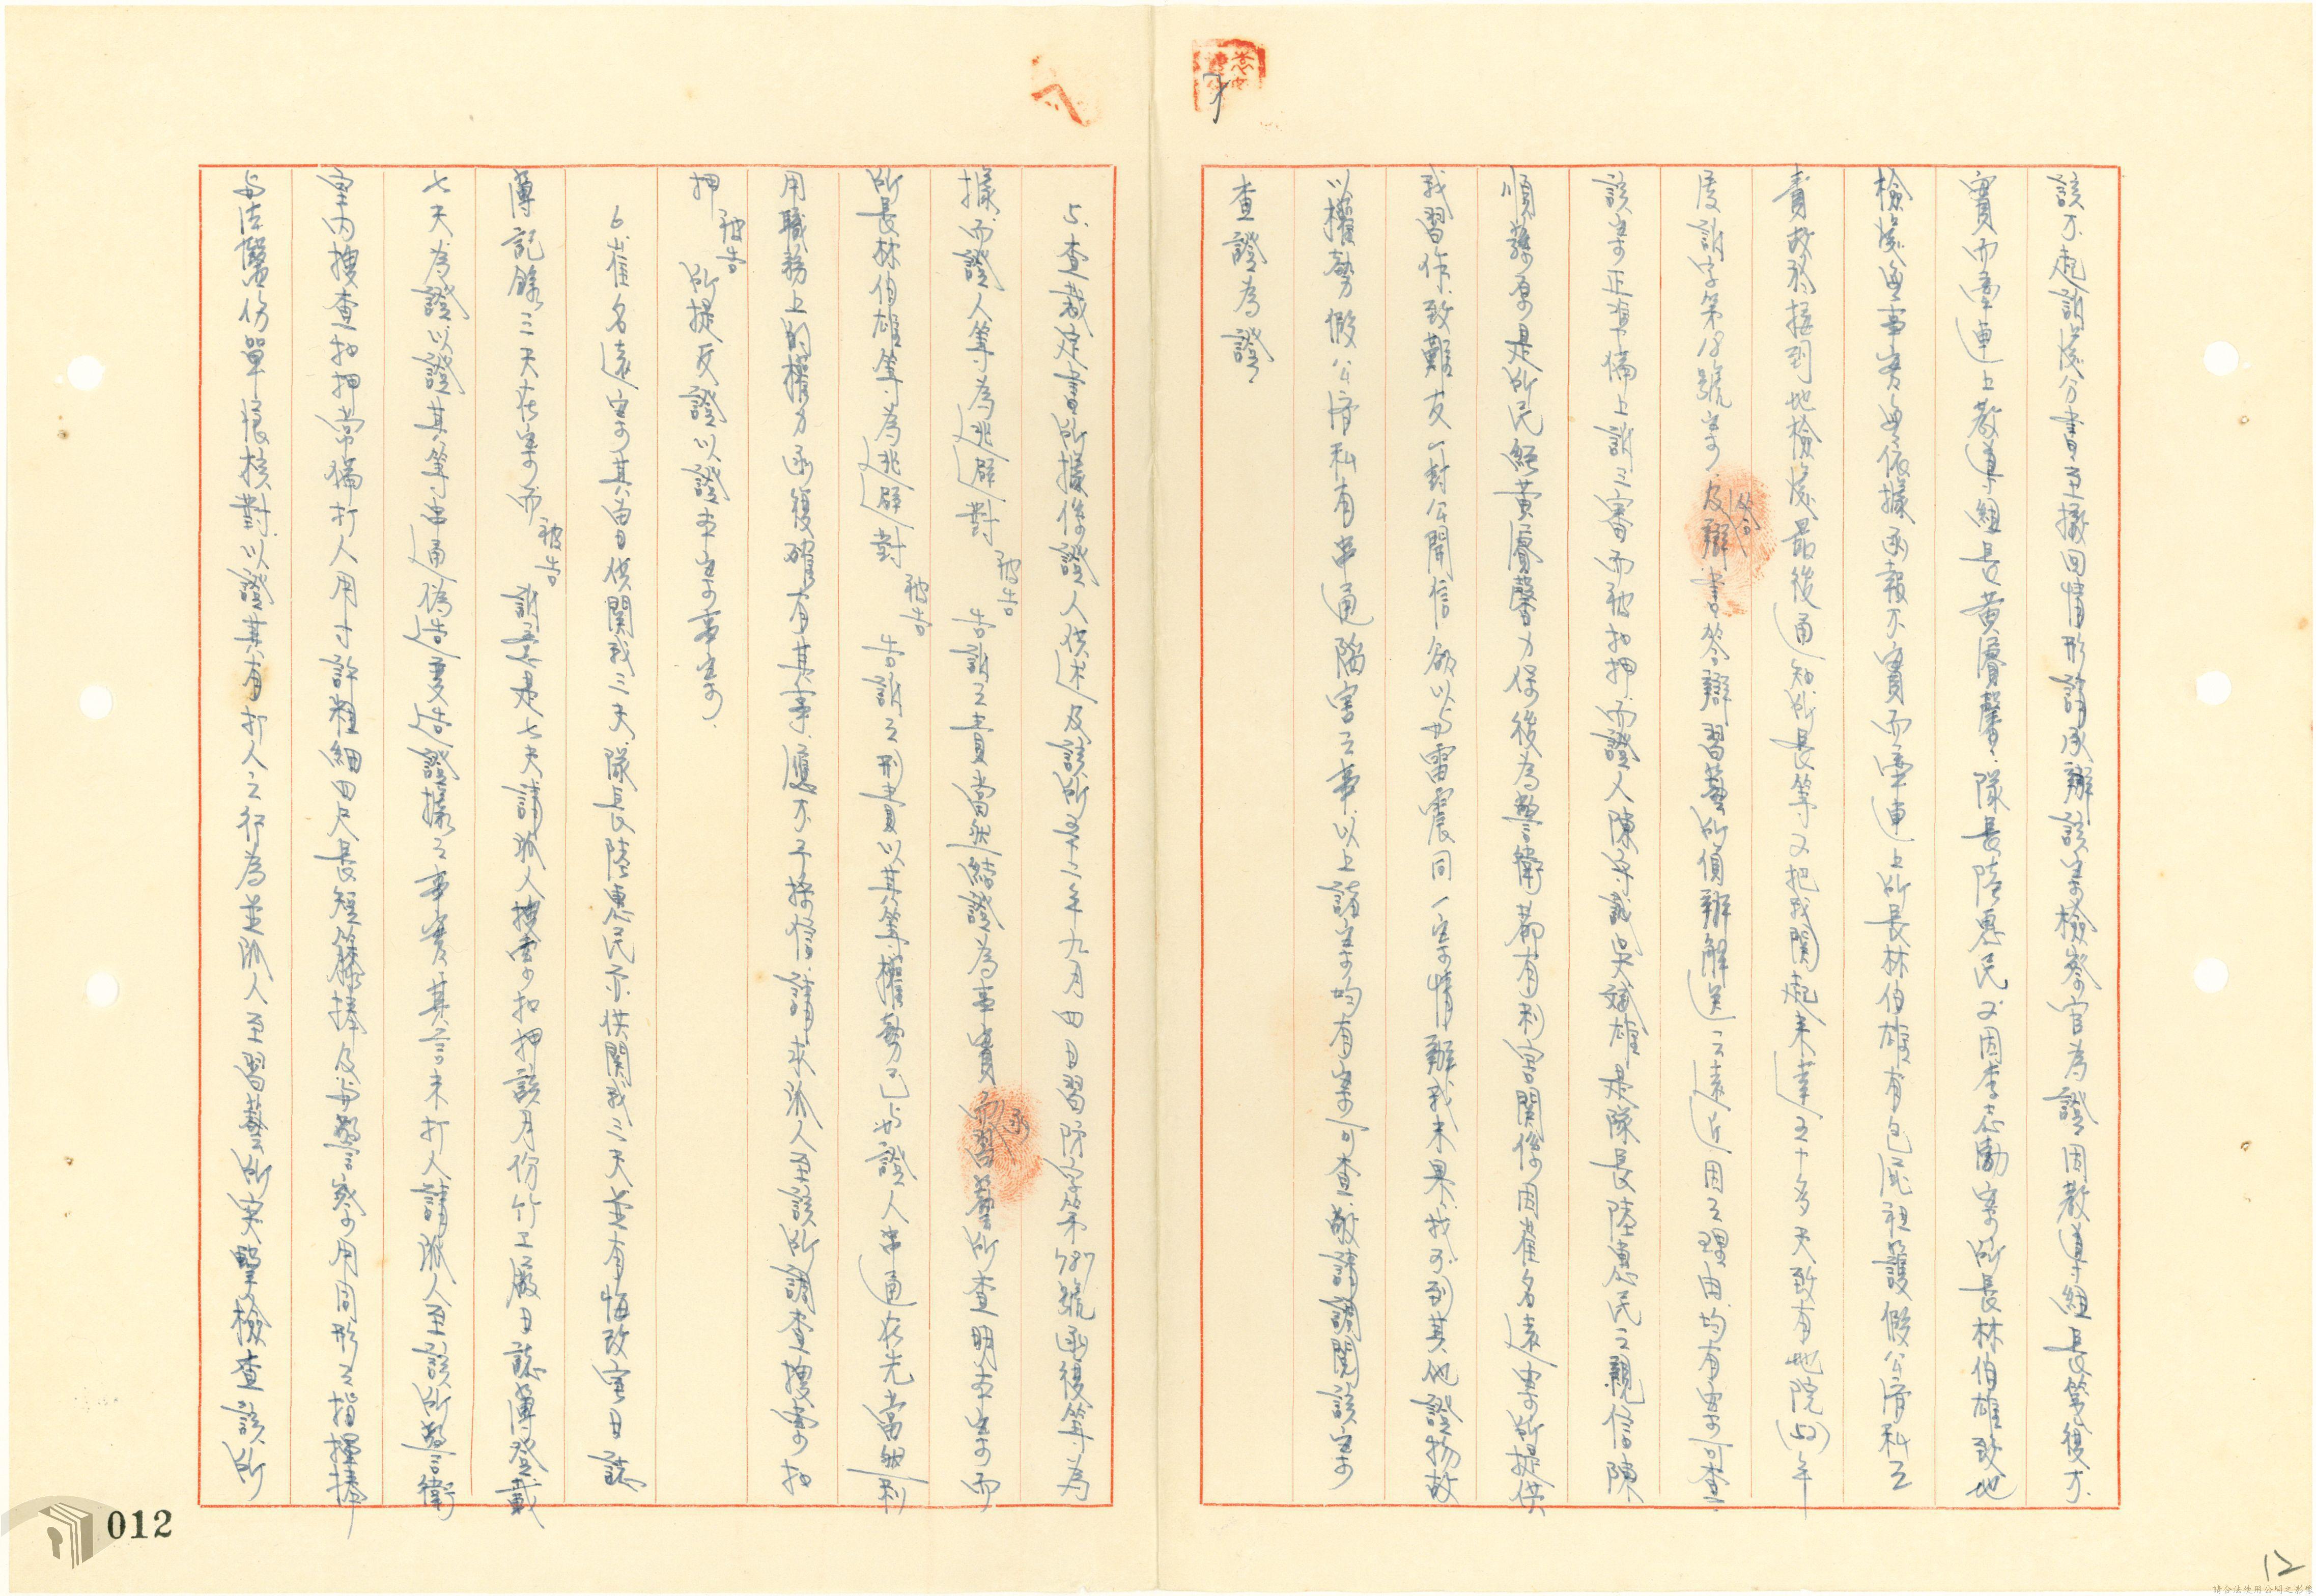 該不起訴處分書至撤回情形請承辦該案檢察官為證因教導組長等後不
實而牽連上教導組長黃賡馨.隊長陸惠民又因李志勤案所長林伯雄致地
檢處每事喜每依據函報不實而牽連上所長林伯雄有包庇袒護假公濟私之
責故於接到地檢處最後通知所長等又把我關起來達五十多天致有地院(50)年
度訴字第18號案.及辯書答辯習藝所偵辦解送之遠近因之理由均有案可查.
該案正準備上訴三審而被扣押.而證人陳 我吳斌雄是隊長陸惠民之親信陳
順蘇原是所民經黃賡馨力保後為警衛都有利害關係因崔名遠案所提供
我習作.致難友一封公開信欲以與雷震同一案情辦我未果.我可到其他證物故
以權勢假公濟私有串通陷害之事.以上諸案均有案可查.敬請調閱該案
查證為證
5.查裁定書所據係證人供述及該所五十二年九月 日由習 字第5897號函復等為
據.而證人等為逃辟對被告告訴之責當然結證為事實.而習藝所查明本案.而
所長林伯雄等為逃辟對被告告訴之刑責以其等權勢已與證人串通在先當然利
用職務上的權力函復確有其事.懇不予採信.請求派人至該所調查搜索扣
押被告所提反證以證本案事案.
6.崔名遠案其留由供關我三天.隊長陸惠民亦供關我三天並有悔改室日誌
薄記錄三天在案.而被告訴是是七天請派人搜索扣押該月份竹工廠日誌薄登載
七天為證.以證其等串通偽告妄告證據之事實其言未打人.請派人至該所警衛
室內搜查扣押常犏打人用寸許粗細四尺長短籐捧及與警察用同形之指揮捧
與法醫傷單痕核對.以證其有打人之行為並派人至習藝所突擊檢查該所
012
12
請合法使用公開之影像